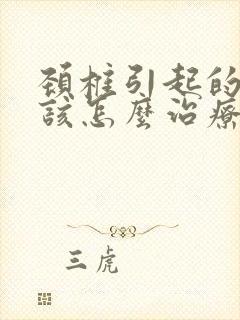 颈椎引起的
该怎麼治療
三虎